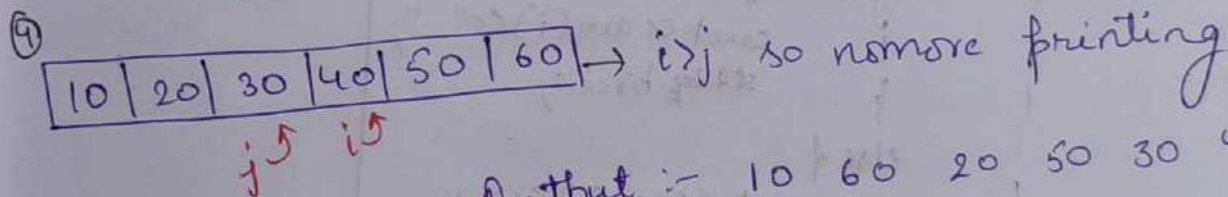 ④
10 | 20 | 30 | 40 | 50 | 60 → i>j so nomore printing
j i
:- 10 60 20 50 30